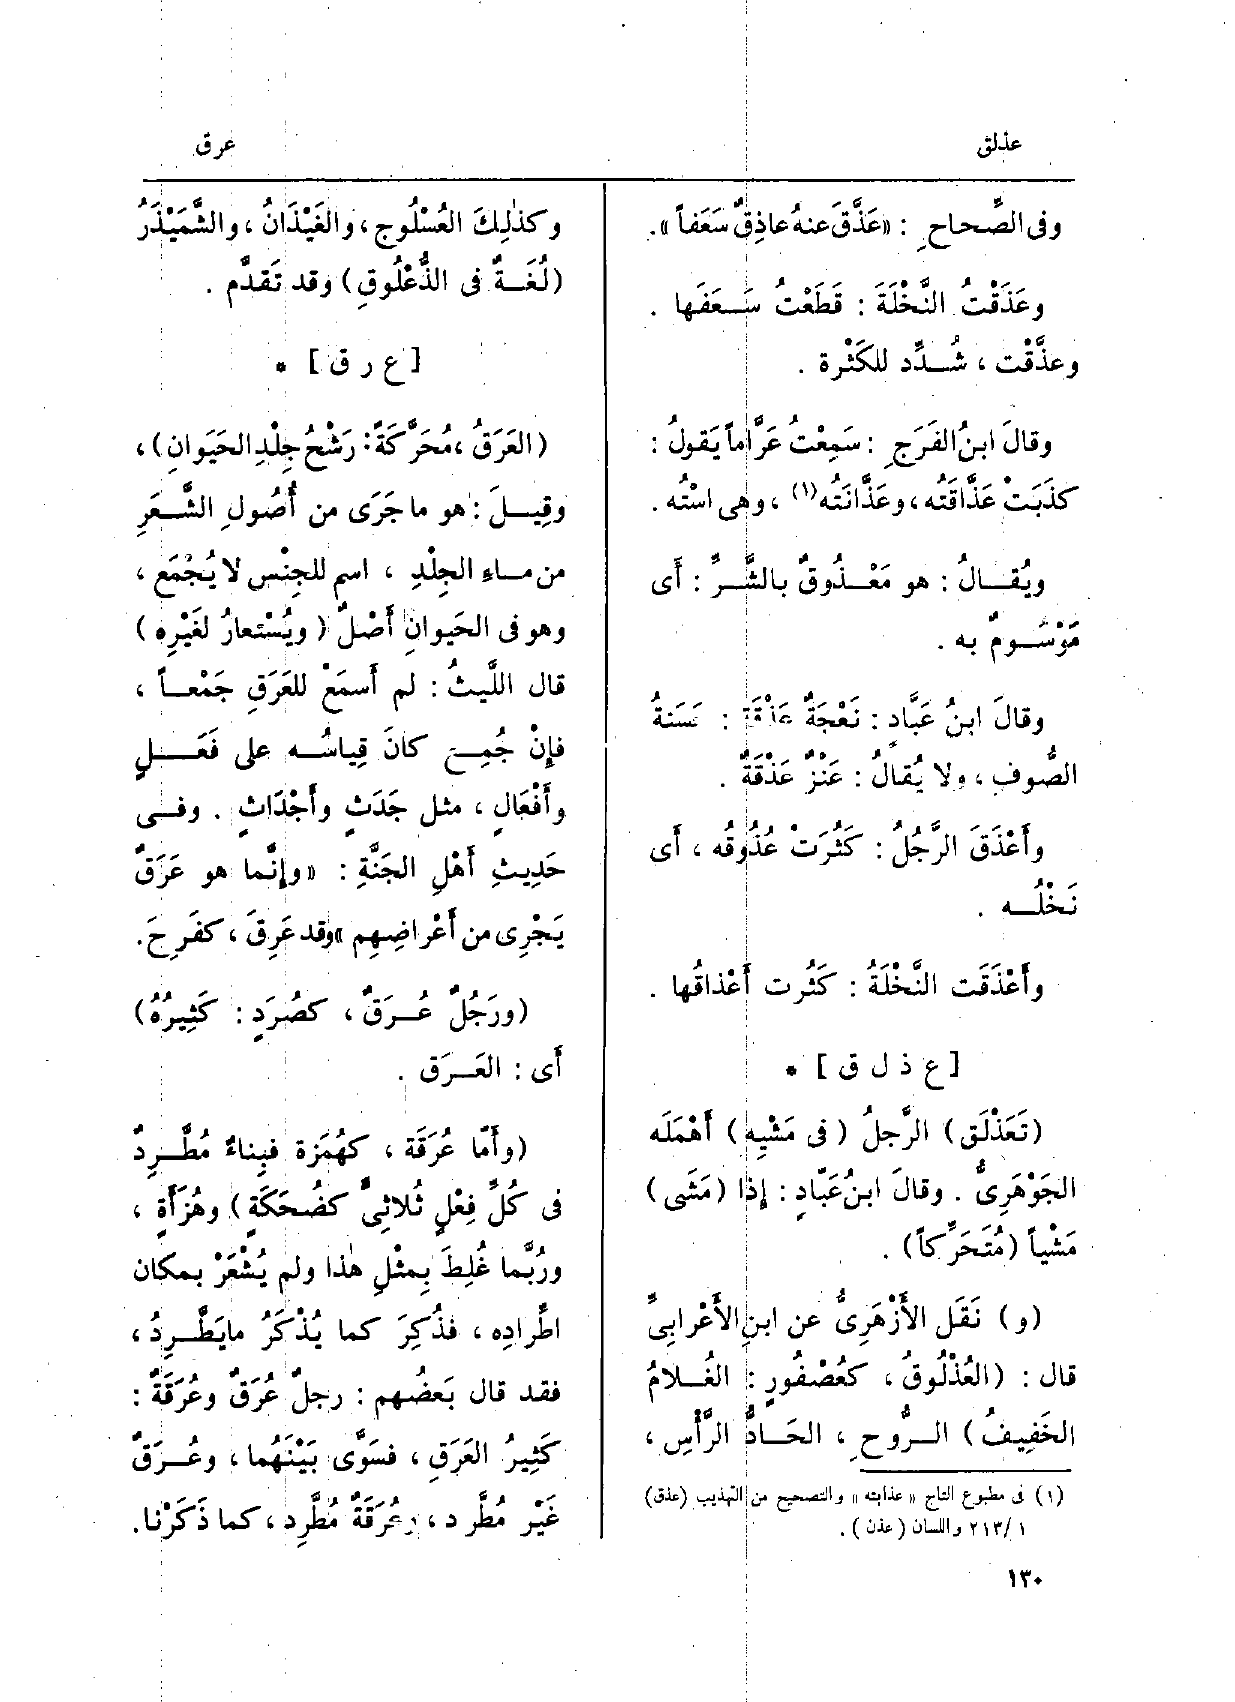 عذلق
عرق
وفى الصِّحاحِ : «عَذَّقَ عنهُ عاذِقٌ سَعَفاً» .
وعَذَقْتُ النَّخْلَةَ : قَطَعْتُ سَعَفَها .
وعذَّقْت ، شُدِّد للكَثْرة .
وقالَ ابنُ الفَرَجِ : سَمِعْتُ عَرَّاماً يَقولُ :
كَذَبَتْ عَذَّاقَتُه ، وعَذَّانَتُه (١) ، وهى اسْتُه .
ويُقالُ : هو مَعْذُوقٌ بالشَّرِّ : أَى
مَوْسُومٌ به .
وقالَ ابنُ عَبَّادٍ : نَعْجَةٌ عَذْقَةٌ : حَسَنةُ
الصُّوفِ ، ولا يُقالُ : عَنْزٌ عَذْقَةٌ .
وأَعْذَقَ الرَّجُلُ : كَثُرَتْ عُذُوقُه ، أَى
نَخْلُه .
وأَعْذَقَت النَّخْلَةُ : كَثُرت أَعْذاقُها .
[ ع ذ ل ق ] *
(تَعَذْلَق) الرَّجلُ (فى مَشْيِه) أَهْمَلَه
الجَوْهَرِىُّ . وقالَ ابنُ عَبّادٍ : إِذا (مَشَى)
مَشْياً (مُتَحَرِّكاً) .
(و) نَقَل الأَزْهَرِىُّ عن ابنِ الأَعْرابِىِّ
قال : (العُذْلُوقُ ، كعُصْفُورٍ : الغُلامُ
الخَفِيفُ) الرُّوحِ ، الحَادُّ الرَّأْسِ ،
(١) فى مطبوع التاج « عذابته » والتصحيح من التهذيب (عذق)
٢١٣/١ واللسان (عذن) .
١٣٠
وكذٰلِكَ العُسْلُوج ، والغَيْذَانُ ، والشَّمَيْذَرُ
(لُغَةٌ فى الذُّعْلُوقِ) وقد تَقدَّم .
[ ع ر ق ] *
(العَرَقُ ، مُحَرَّكَةً : رَشْحُ جِلْدِ الحَيَوانِ) ،
وقِيلَ : هو ما جَرَى من أُصُولِ الشَّعَرِ
من ماءِ الجِلْدِ ، اسم للجِنْس لا يُجْمَع ،
وهو فى الحَيوانِ أَصْلٌ (ويُسْتعارُ لغَيْرِه)
قال اللَّيثُ : لم أَسمَعْ للعَرَقِ جَمْعاً ،
فإِنْ جُمِع كانَ قِياسُه على فَعَلٍ
وأَفْعَالٍ ، مثل جَدَثٍ وأَجْدَاثٍ . وفى
حَدِيثِ أَهْلِ الجَنَّةِ : «وإِنَّما هو عَرَقٌ
يَجْرِى من أَعْراضِهِم» وقد عَرِقَ ، كفَرِحَ .
(ورَجُلٌ عُرَقٌ ، كصُرَدٍ : كَثِيرُهُ)
أَى : العَرَق .
(وأَمّا عُرَقَة ، كهُمَزة فبِناءٌ مُطَّرِدٌ
فى كُلِّ فِعْلٍ ثُلاثِىٍّ كضُحَكَةٍ) وهُزَأَةٍ ،
ورُبَّما غُلِطَ بِمثْلِ هٰذا ولم يُشْعَرْ بمكان
اطِّرادِه ، فذُكِرَ كما يُذْكَرُ مايَطَّرِدُ ،
فقد قال بَعضُهم : رجلٌ عُرَقٌ وعُرَقَةٌ :
كَثِيرُ العَرَقِ ، فسَوَّى بَيْنَهُما ، وعُرَقٌ
غَيْر مُطَّرد ، وعُرَقَةٌ مُطَّرِد ، كما ذَكَرْنا .